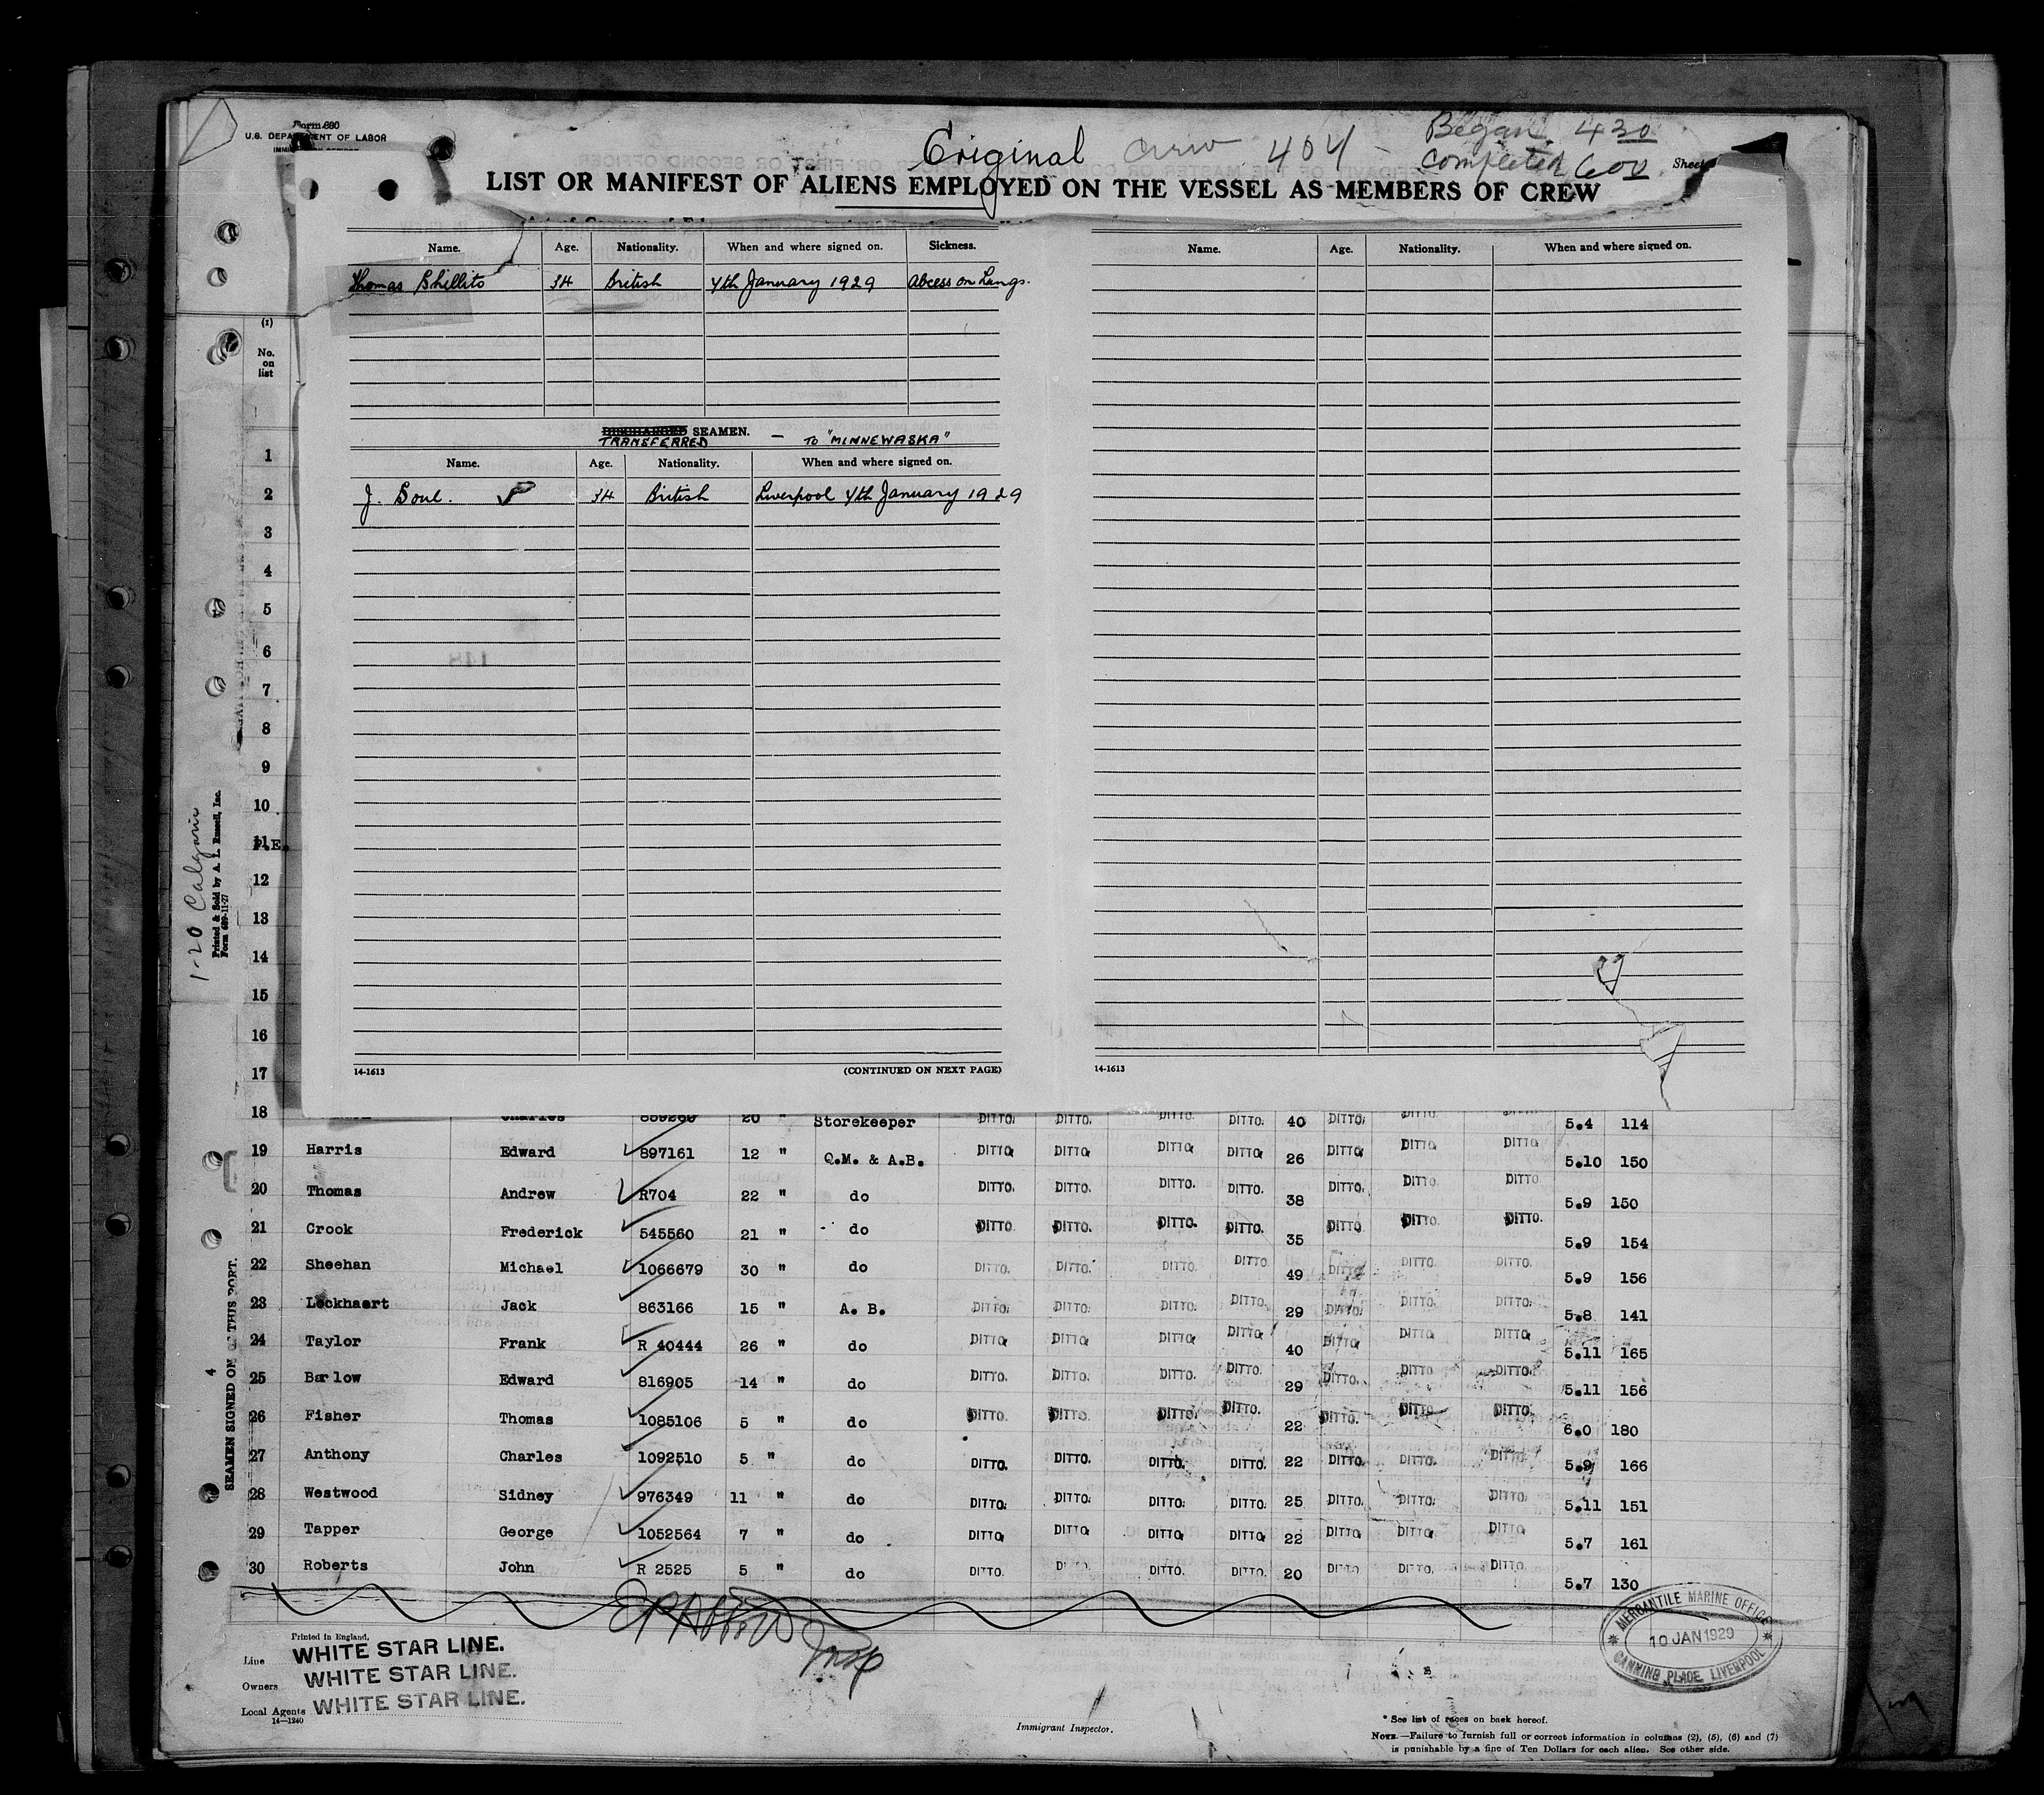 Form 680
U.S. DEPARTMENT OF LABOR
Original crew 404 - Began 430
completed 600 Sheet
LIST OR MANIFEST OF ALIENS EMPLOYED ON THE VESSEL AS MEMBERS OF CREW
Name. Age. Nationality. When and where signed on. Sickness.
Thomas Shillito 34 British 4th January 1929 Abcess on Lungs.
Name. Age. Nationality. When and where signed on.
DISCHARGED SEAMEN.
TRANSFERRED — TO "MINNEWASKA"
Name. Age. Nationality. When and where signed on.
J. Soul. 34 British Liverpool 4th January 1929
14-1613 (CONTINUED ON NEXT PAGE)
14-1613
(1)
No.
on
list
1
2
3
4
5
6
7
8
9
10
11
P.E.
12
13
14
15
16
17
18 Charles 859260 20 " Storekeeper DITTO. DITTO. DITTO. DITTO. 40 DITTO. DITTO. DITTO. 5.4 114
19 Harris Edward 897161 12 " Q.M. & A.B. DITTO DITTO DITTO DITTO 26 DITTO DITTO DITTO 5.10 150
20 Thomas Andrew R704 22 " do DITTO. DITTO. DITTO. DITTO. 38 DITTO. DITTO. DITTO 5.9 150
21 Crook Frederick 545560 21 " do DITTO. DITTO. DITTO. DITTO. 35 DITTO. DITTO. DITTO. 5.9 154
22 Sheehan Michael 1066679 30 " do DITTO. DITTO. DITTO. DITTO. 49 DITTO DITTO. DITTO. 5.9 156
23 Lockhaert Jack 863166 15 " A. B. DITTO. DITTO. DITTO. DITTO. 29 DITTO. DITTO. DITTO. 5.8 141
24 Taylor Frank R 40444 26 " do DITTO DITTO DITTO DITTO 40 DITTO DITTO DITTO 5.11 165
25 Barlow Edward 816905 14 " do DITTO. DITTO. DITTO. DITTO. 29 DITTO. DITTO. DITTO. 5.11 156
26 Fisher Thomas 1085106 5 " do DITTO. DITTO. DITTO. DITTO. 22 DITTO. DITTO. DITTO. 6.0 180
27 Anthony Charles 1092510 5 " do DITTO. DITTO. DITTO. DITTO. 22 DITTO. DITTO. DITTO. 5.9 166
28 Westwood Sidney 976349 11 " do DITTO. DITTO. DITTO. DITTO. 25 DITTO. DITTO. DITTO 5.11 151
29 Tapper George 1052564 7 " do DITTO DITTO DITTO DITTO 22 DITTO DITTO DITTO 5.7 161
30 Roberts John R 2525 5 " do DITTO. DITTO. DITTO. 20 DITTO. DITTO. DITTO. 5.7 130
1-20 Calgaric
Printed & Sold by A. L. Russell, Inc.
Form 689-11-27
4
SEAMEN SIGNED ON THIS PORT.
Insp
Printed in England.
Line WHITE STAR LINE.
Owners WHITE STAR LINE.
Local Agents WHITE STAR LINE.
14—1240
Immigrant Inspector.
MERCANTILE MARINE OFFICE
10 JAN 1929
CANNING PLACE LIVERPOOL
* See list of races on back hereof.
NOTE.—Failure to furnish full or correct information in columns (2), (5), (6) and (7)
is punishable by a fine of Ten Dollars for each alien. See other side.